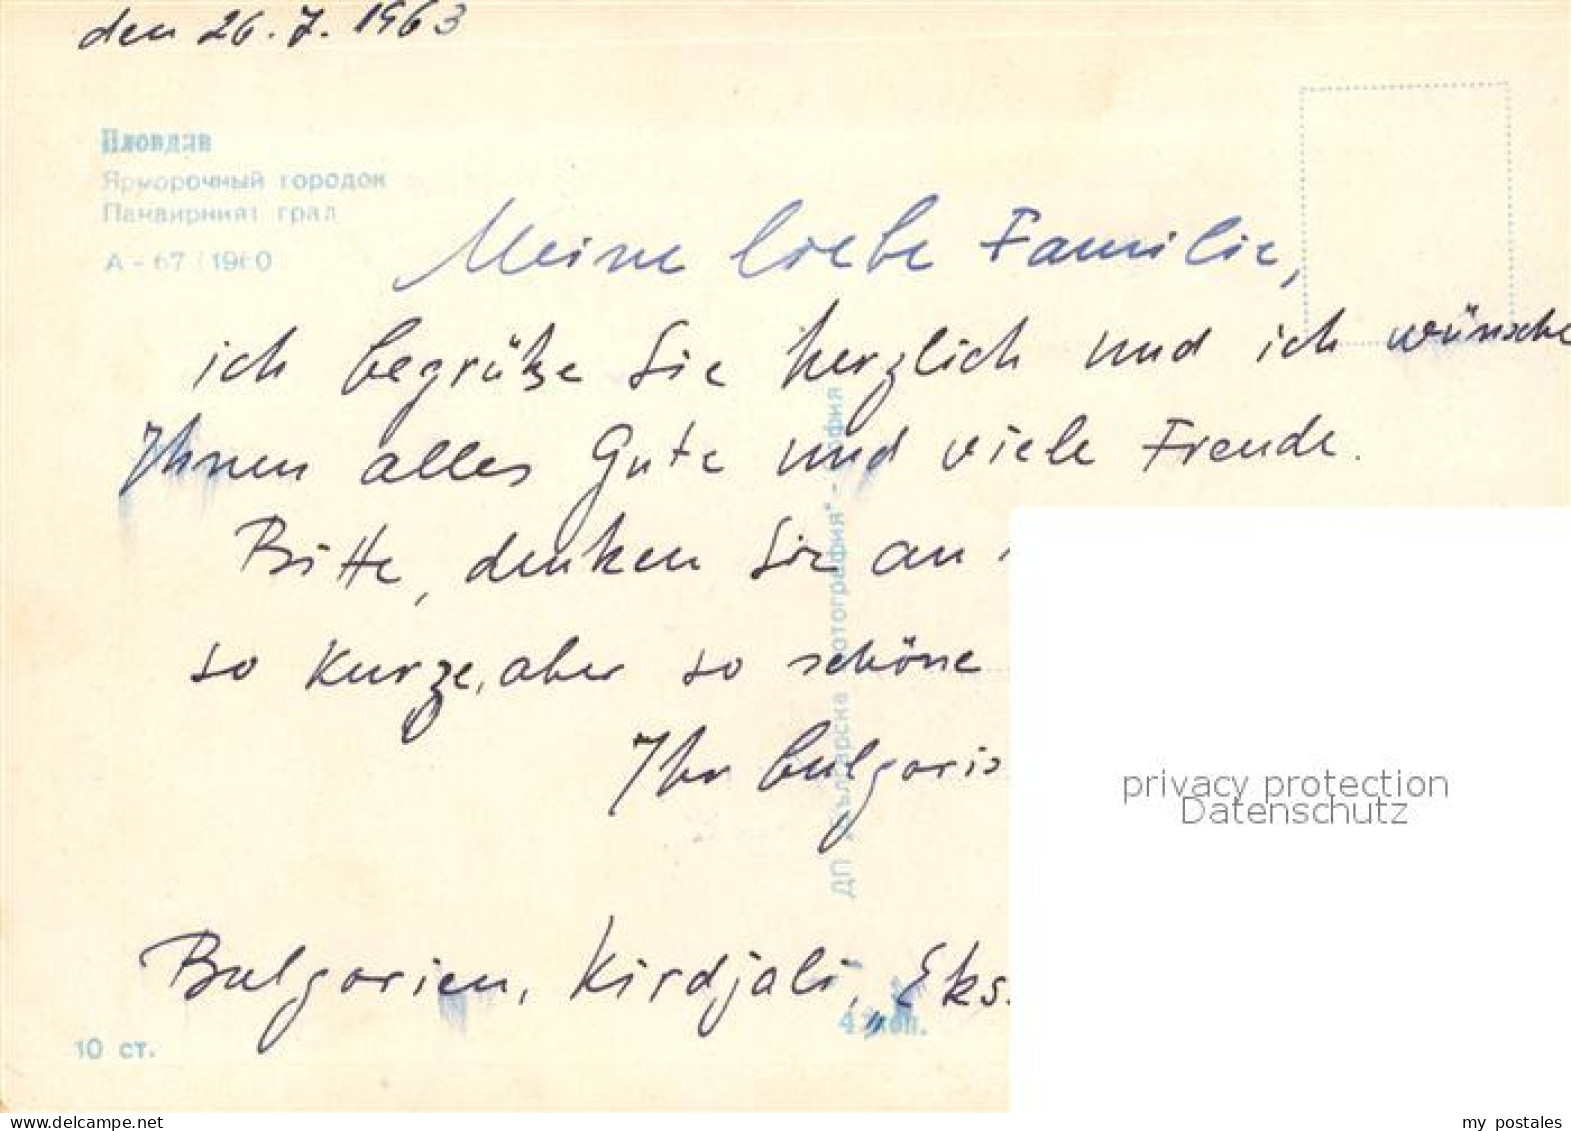 den 26.7.1963
Пловдив
Ярморочный городок
Панаирният град
А - 67 / 1960
Meine liebe Familie,
ich begrüße Sie herzlich und ich wünsche
Ihnen alles Gute und viele Freude.
Bitte, denken Sie an
so kurze, aber so schöne
Ihr bulgaris
Bulgarien, Kirdjali, „Eks.
10 ст.
4 коп.
ДП „Българска фотография" - София
privacy protection
Datenschutz
www.delcampe.net
my_postales